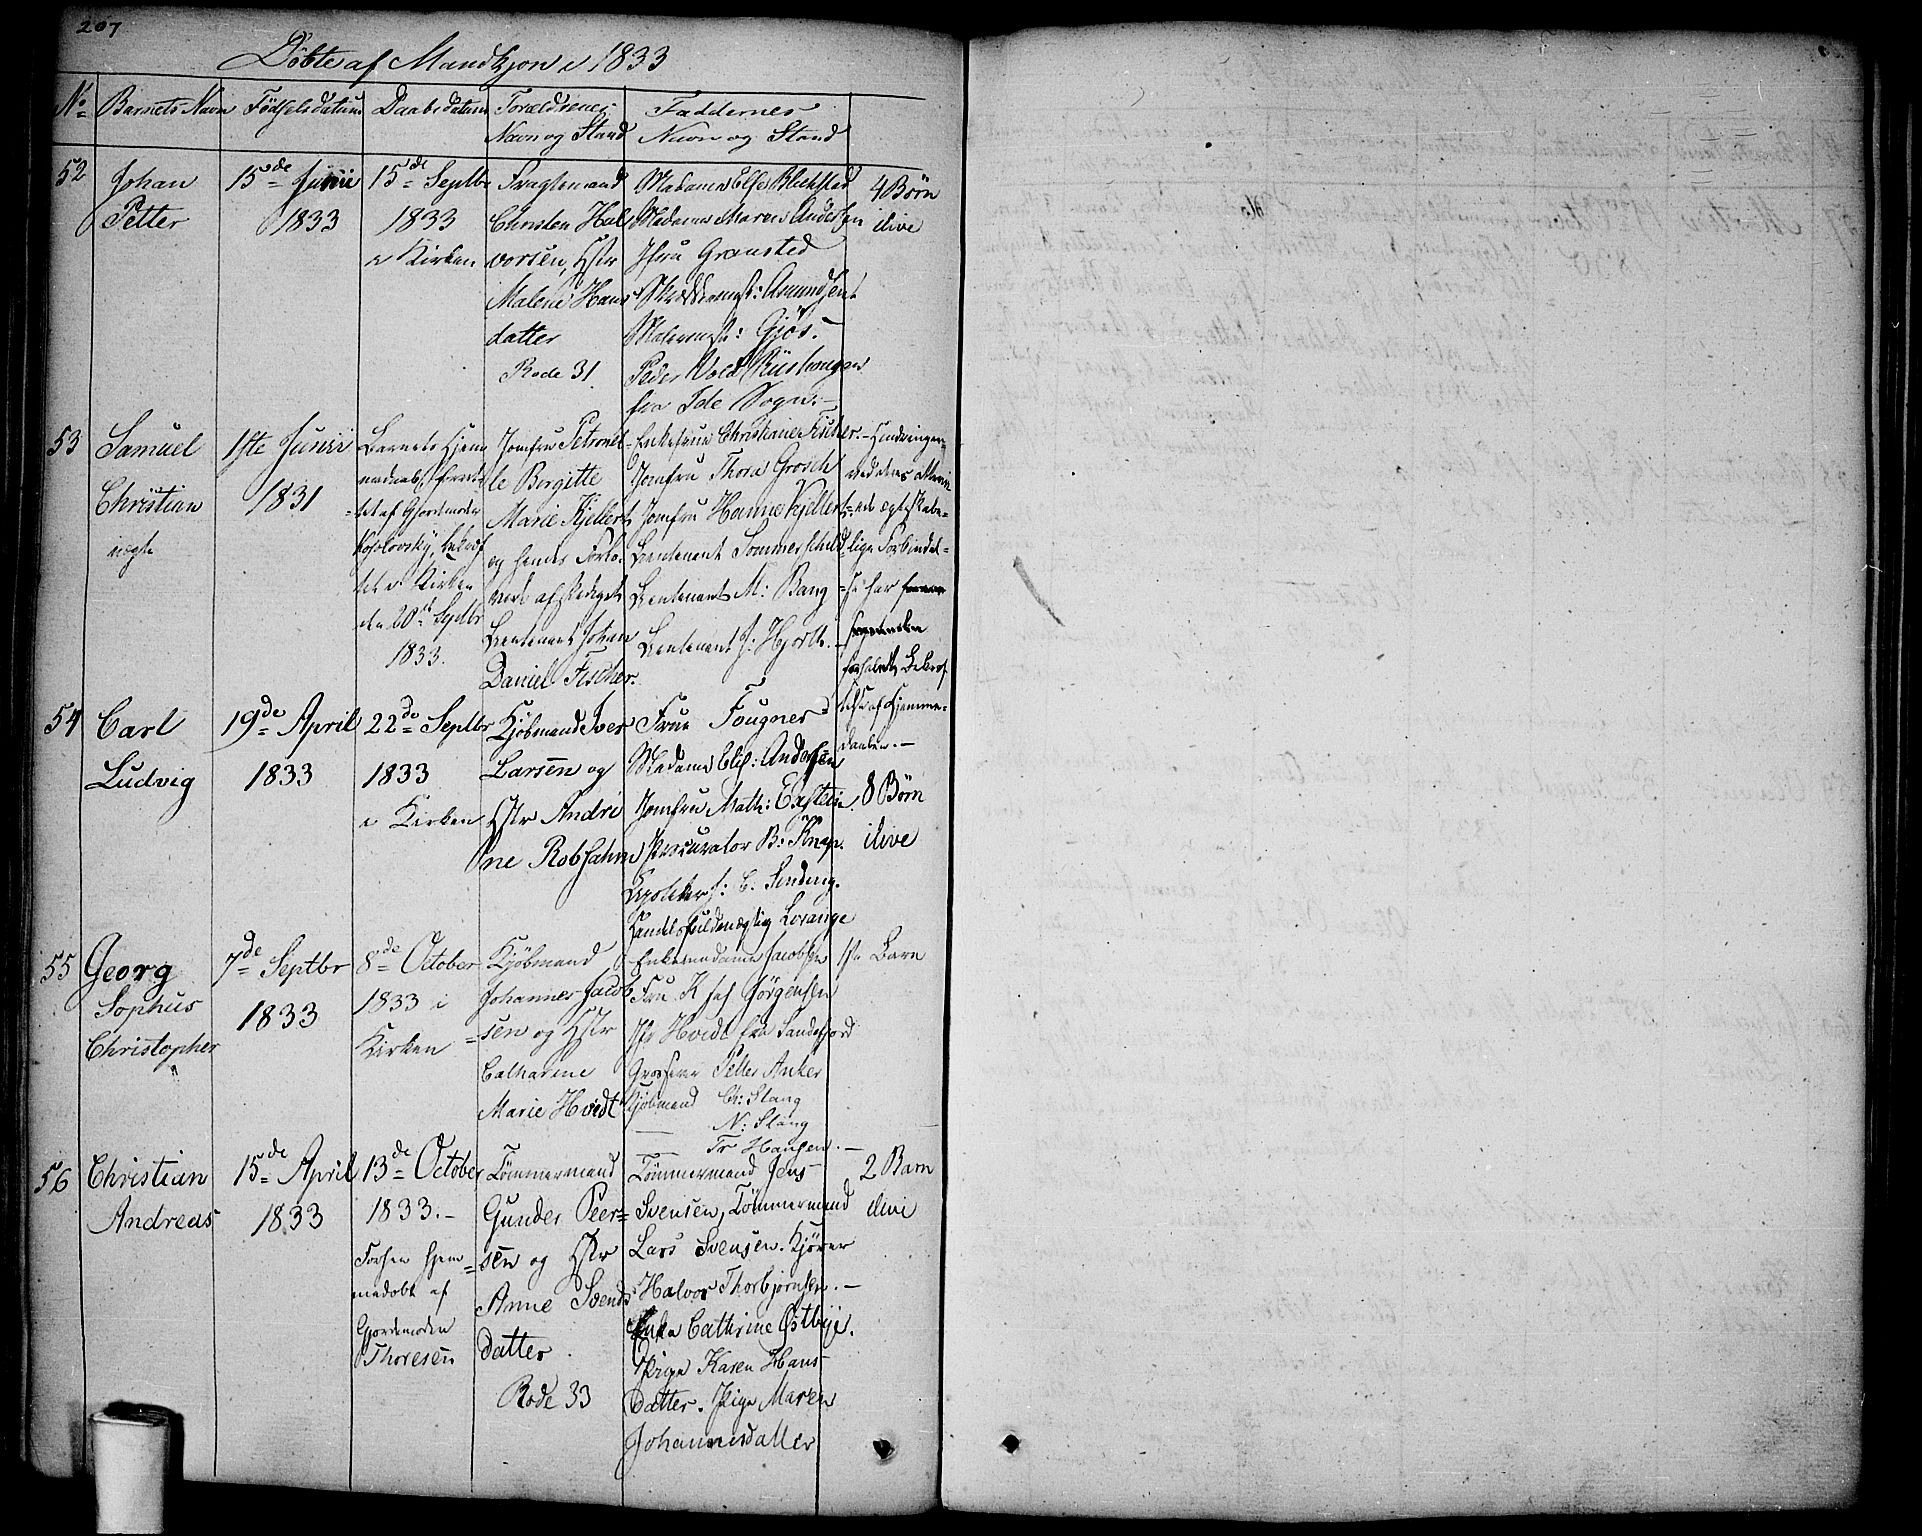 207
Döbte af Mandkjön i 1833
No Barnets Navn Födselsdatum Daabsdatum Forældrenes Navn og Stand Faddernes Navn og Stand
52
Johan
Petter
15de Junii
1833
15de Septbr
1833
i Kirken
Fragtemand
Christen Hal
vorsen, Hstr
Malene Hans
datter
Rode 31.
Madame Else Blichstad
Madame Maren Andersen
Jfru Gransted
Skræddermst: Amundsen
Malermst: Gjös.
Peder Vold
fra Ide Sogn.
4 Börn
ilive
53
Samuel
Christian
uægte
1ste Junii
1831
Barnets Hjem
medaab, forret-
tet af Gjordemoder
bekræf
tet i Kirken
den 20de Septbr
1833.
Jomfru Petronel-
le Birgitte
Marie Kjellert
og hendes Forlo-
vede afskediget
Lieutenant Johan
Daniel Fischer.
Enkefrue Christiane Fischer.
Jomfru Thora Grosch
Jomfru Hanne Kjellert
Lieutenant Sommerschield
Lieutenant M: Bang
Lieutenant J: Hjorth.
Hindringer
ved deres
egteskabe-
lige Forbindel-
se har
forhalet Bekræf
telse af Hjemme-
daaben.
54
Carl
Ludvig
19de April
1833
22de Septbr
1833
i Kirken
Kjöbmand Iver
Larsen og
Hstr Andri
ne Robsahm
Frue Fougner
Madame Elis: Andersen
Jomfru Math: Exstein
Procurator B: Knap.
Apotheker C. Sinding.
Handelsfuldmægtig Lorange
8 Börn
ilive
55
Georg
Sophus
Christopher
7de Septbr
1833
8de October
1833 i
Kirken
Kjöbmand
Johannes Jacob
sen og Hstr
Catharine
Marie Hvidt
Enkemadame Jacobsen
Jörgensen
Hvidt fra Sandefjord
Grosserer Petter Anker
Kjöbmand Ch: Stang
— N: Stang
— Fr Hansen.
1ste Barn
56
Christian
Andreas
15de April
1833
13de October
1833.
Forhen hjem
medöbt af
Gjordemoder
Thoresen
Tömmermand
Gunder Peer-
sen og Hstr
Anne Svends
datter.
Rode 33
Tömmermand Jens
Svensen, Tömmermand
Lars Svensen. Kjörer
Halvor Thorbjörnsen.
Enke Cathrine Östbye.
Pige Karen Hans-
datter. Pige Maren
Johannesdatter
2 Barn
ilive